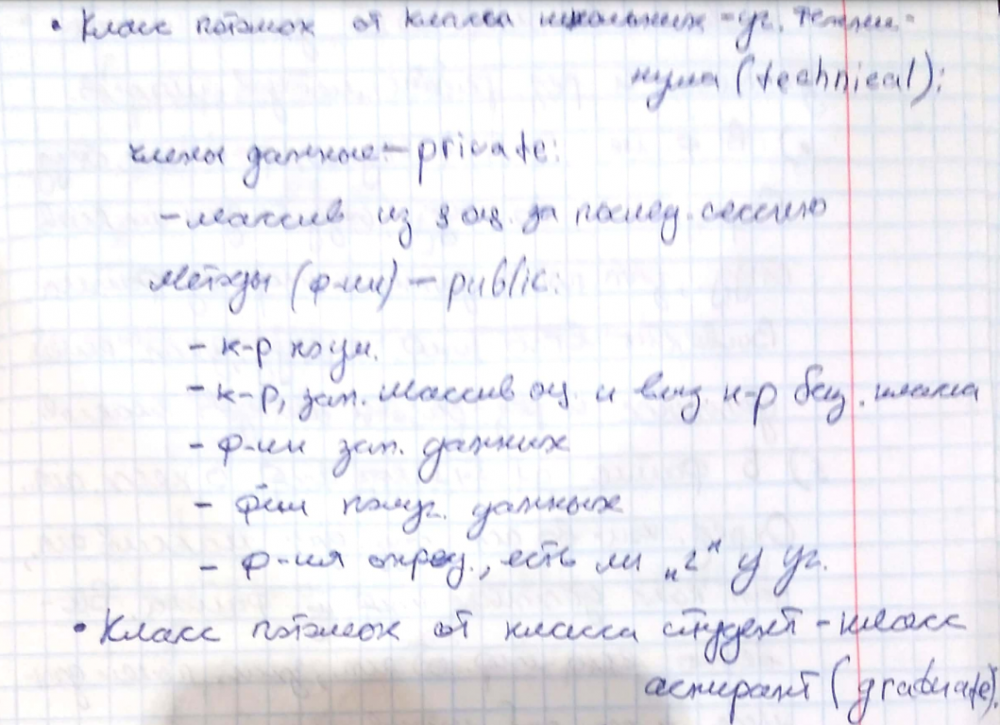 • Класс потомок от класса школьник – уч. техни-
кума (technical):
члены данные – private:
– массив из 8 оц. за послед. сессию
методы (ф-ии) – public:
– к-р поум.
– к-р, зап. массив оц. и выз. к-р баз. класса
– ф-ии зап. данных
– ф-ии получ. данных
– ф-ия опред., есть ли „2" у уч.
• Класс потомок от класса студент – класс
аспирант (graduate)